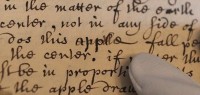 in the matter of the earth
center, not in any side of
dos this apple fall pe
the center. if
st be in proporti
the apple dra